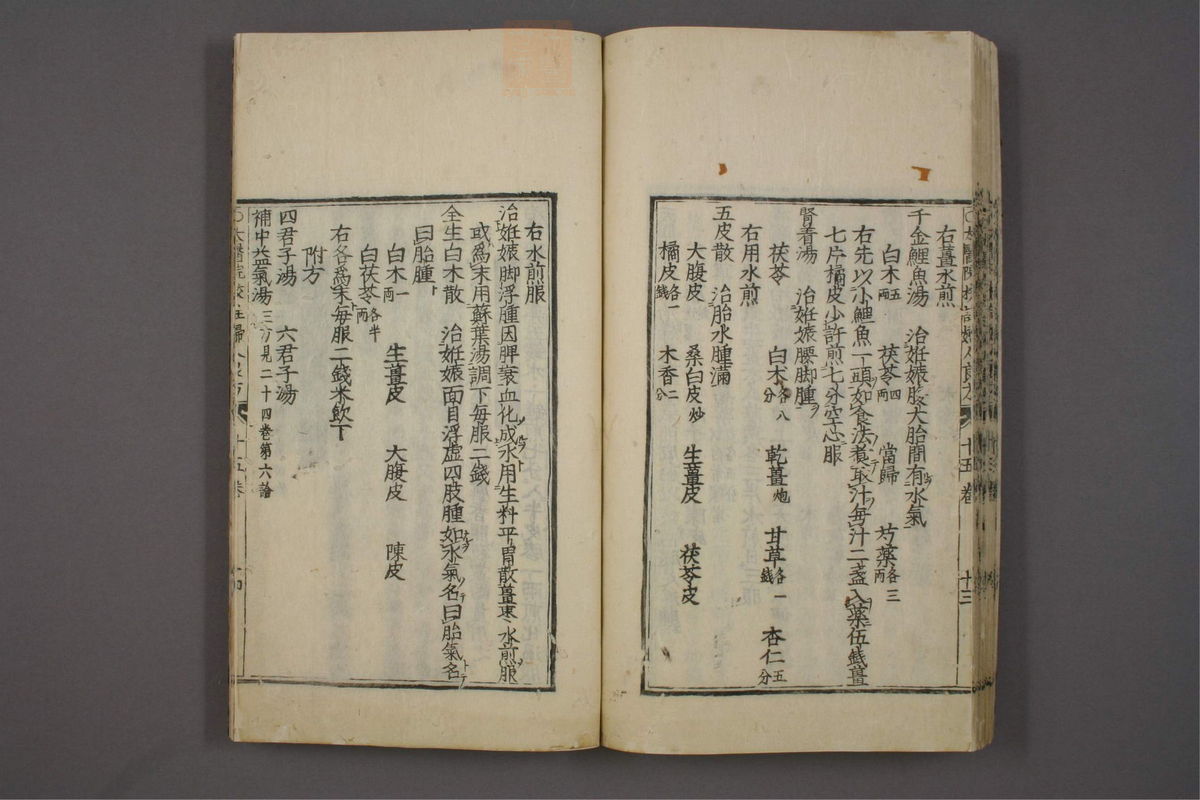 右薑水煎
千金鯉魚湯　治妊娠腹大胎間有水氣
白木五兩　茯苓四兩　當歸　芍藥各三兩
右先以小鯉魚一頭如食法煮取汁每汁二盞入藥伍錢薑
七片橘皮少許煎七分空心服
腎着湯　治妊娠腰脚腫
茯苓　白木各八分　乾薑炮　甘草各一錢　杏仁五分
右用水煎
五皮散　治胎水腫滿
大腹皮　桑白皮炒　生薑皮　茯苓皮
橘皮各一錢　木香二分
十五卷　十三
右水煎服
治妊娠脚浮腫因脾衰血化成水用生料平胃散薑棗水煎服
或爲末用蘇葉湯調下每服二錢
全生白木散　治妊娠面目浮虚四肢腫如水氣名曰胎氣名
曰胎腫
白木一兩　生薑皮　大腹皮　陳皮
白茯苓各半兩
右各爲末每服二錢米飲下
附方
四君子湯　六君子湯
補中益氣湯三方見二十四卷第六論